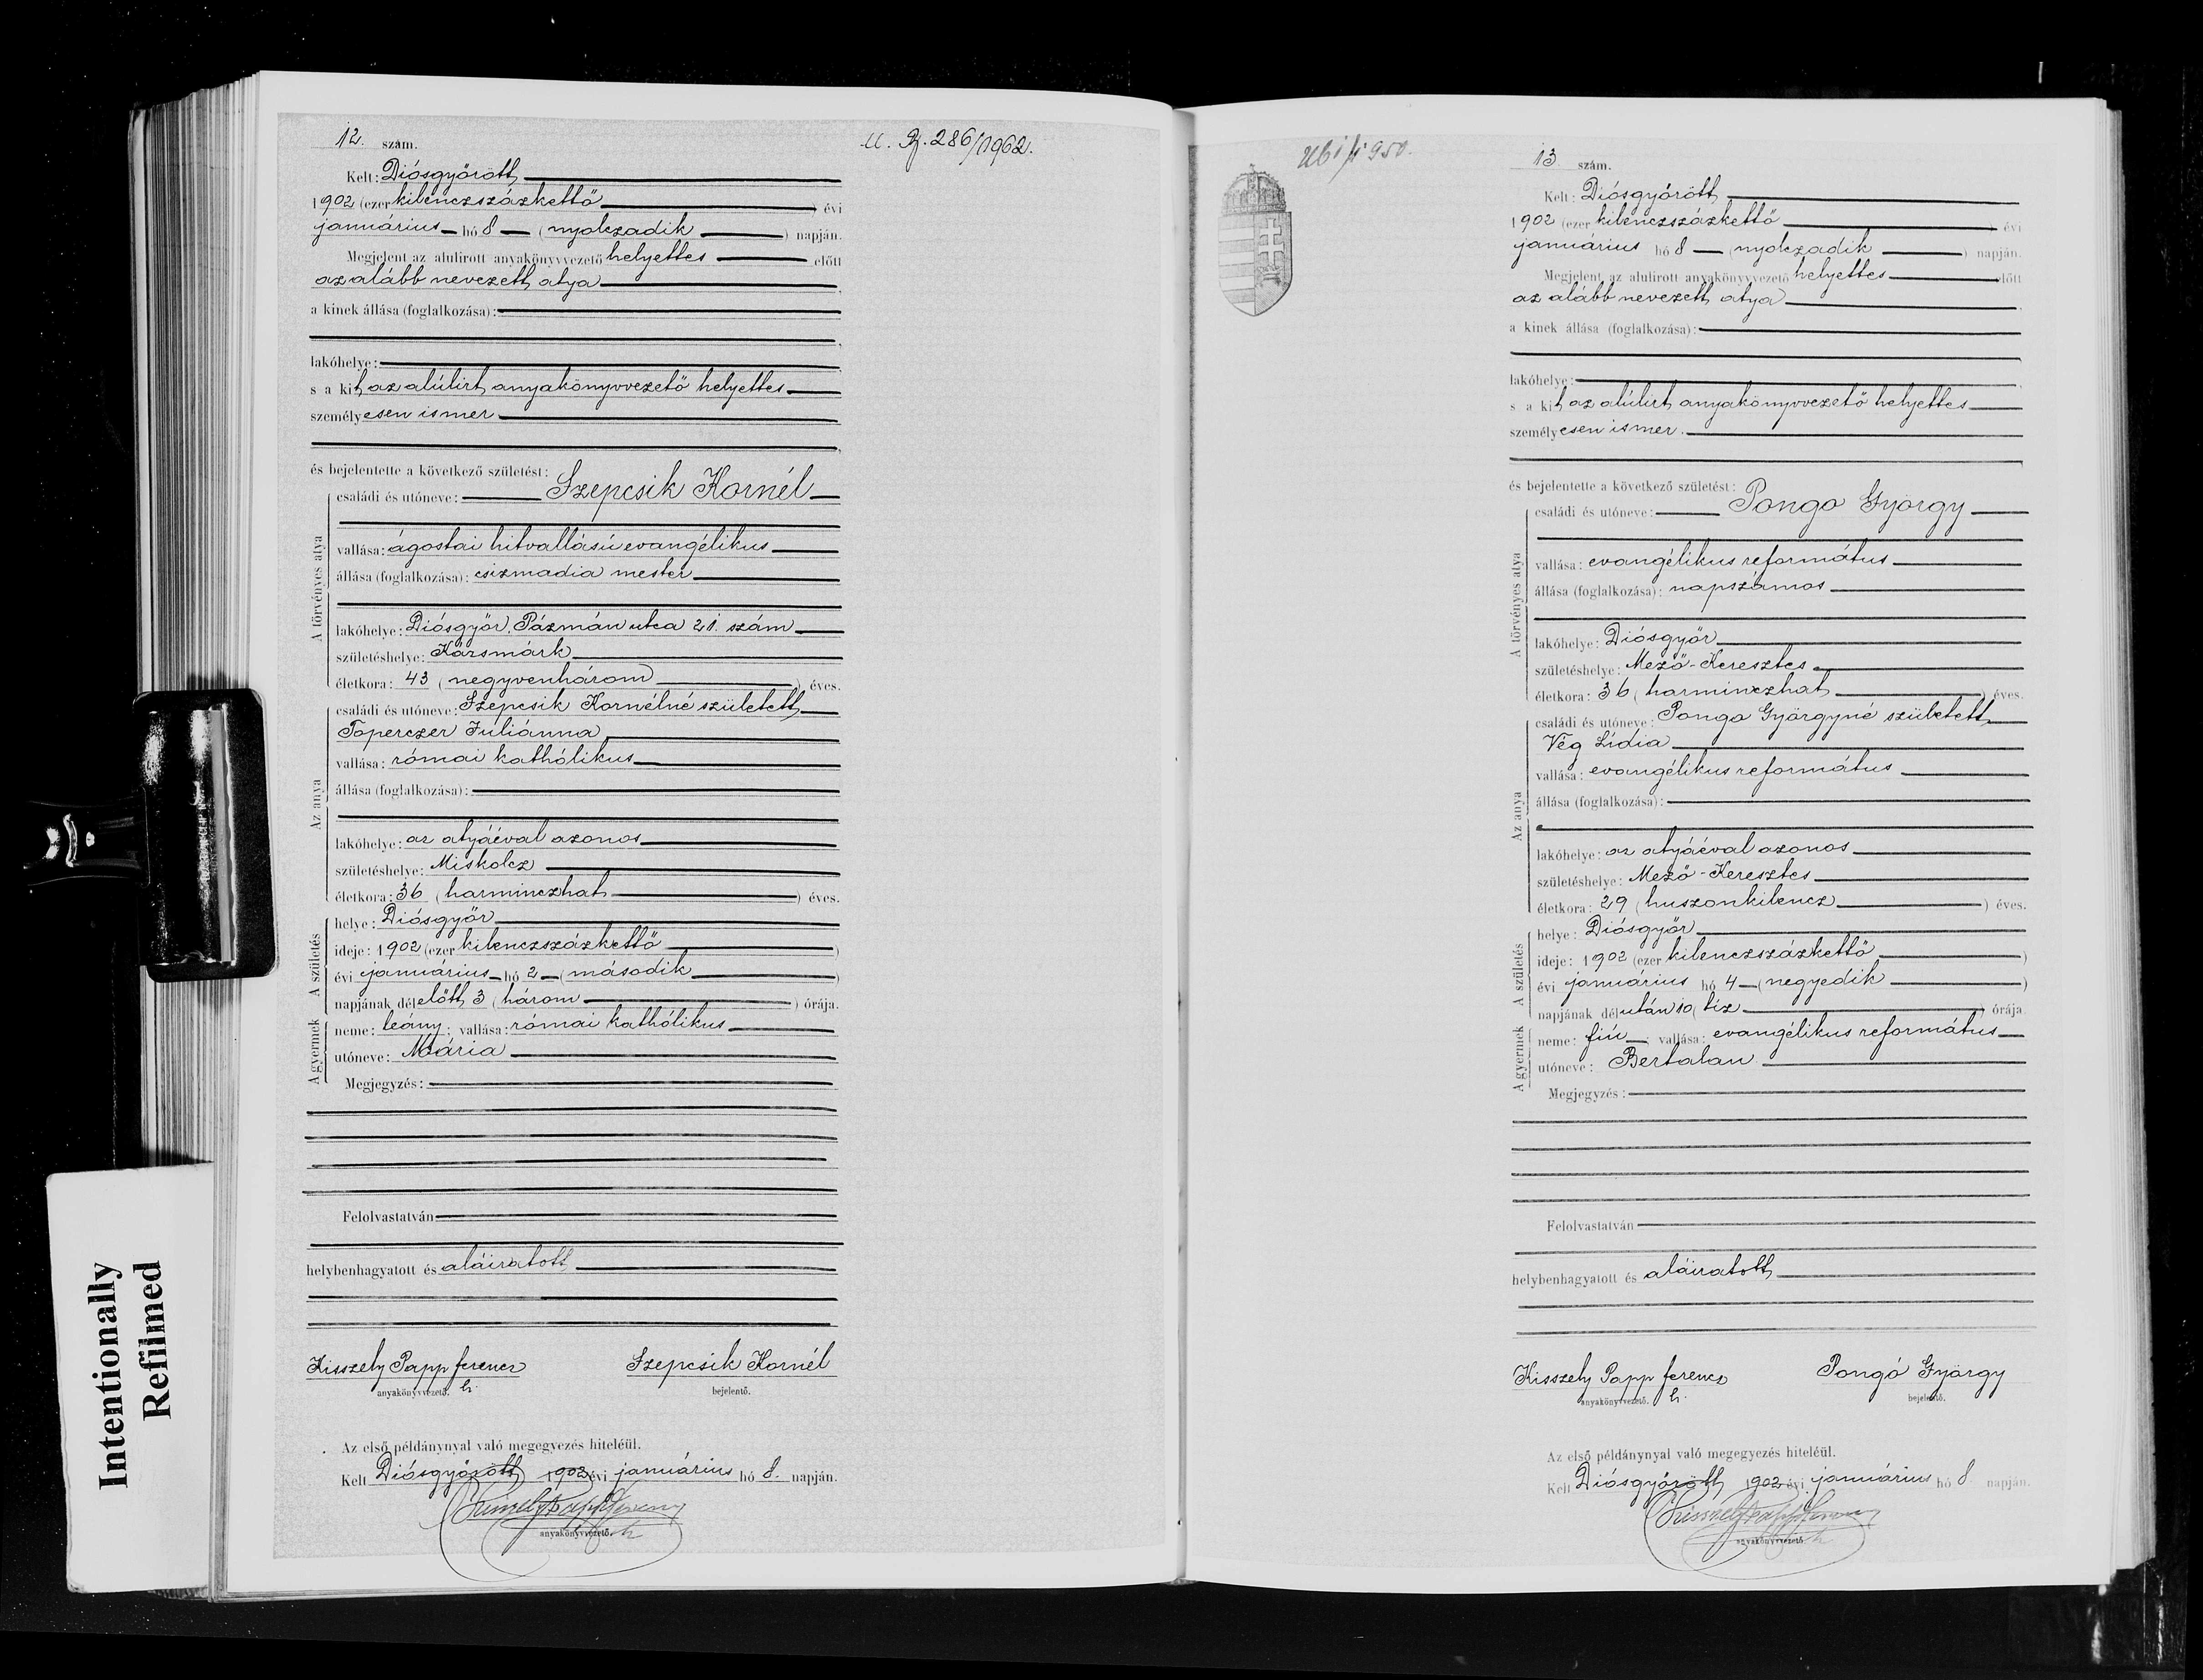 12. szám.
U. Gy. 286/1962.
Kelt: Diósgyőrött
1902 (ezer kilenczszázkettő) évi
januárius hó 8 (nyolczadik) napján.
Megjelent az alulirott anyakönyvvezető helyettes előtt
az alább nevezett atya,
a kinek állása (foglalkozása):
lakóhelye:
s a kit az alúlirt anyakönyvvezető helyettes
személyesen ismer
és bejelentette a következő születést:
A törvényes atya
családi és utóneve: Szepcsik Kornél
vallása: ágostai hitvallású evangélikus
állása (foglalkozása): csizmadia mester
lakóhelye: Diósgyőr, Pázmán utca 21. szám
születéshelye: Kársmárk
életkora: 43 (negyvenhárom) éves.
Az anya
családi és utóneve: Szepcsik Kornélné született
Toperczer Juliánna
vallása: római kathólikus
állása (foglalkozása):
lakóhelye: az atyáéval azonos
születéshelye: Miskolcz
életkora: 36 (harminczhat) éves.
A születés
helye: Diósgyőr
ideje: 1902 (ezer kilenczszázkettő)
évi januárius hó 2 (második)
napjának délelőtt 3 (három) órája.
A gyermek
neme: leány; vallása: római kathólikus
utóneve: Mária
Megjegyzés:
Felolvastatván
helybenhagyatott és aláiratott
Kisszely Papp Ferencz Szepcsik Kornél
anyakönyvvezető. h. bejelentő.
Az első példánynyal való megegyezés hiteléül.
Kelt Diósgyőrött 1902 évi januárius hó 8. napján.
Kisszely Papp Ferencz
anyakönyvvezető. h
13 szám.
Kelt: Diósgyőrött
1902 (ezer kilenczszázkettő) évi
januárius hó 8 (nyolczadik) napján.
Megjelent az alulirott anyakönyvvezető helyettes előtt
az alább nevezett atya,
a kinek állása (foglalkozása):
lakóhelye:
s a kit az alúlirt anyakönyvvezető helyettes
személyesen ismer.
és bejelentette a következő születést:
A törvényes atya
családi és utóneve: Pongo György
vallása: evangélikus református
állása (foglalkozása): napszámos
lakóhelye: Diósgyőr
születéshelye: Mező-Keresztes
életkora: 36 (harminczhat) éves.
Az anya
családi és utóneve: Pongo Györgyné született
Vég Lídia
vallása: evangélikus református
állása (foglalkozása):
lakóhelye: az atyáéval azonos
születéshelye: Mező-Keresztes
életkora: 29 (huszonkilencz) éves.
A születés
helye: Diósgyőr
ideje: 1902 (ezer kilenczszázkettő)
évi januárius hó 4 (negyedik)
napjának délután 10 (tíz) órája.
A gyermek
neme: fiú; vallása: evangélikus református
utóneve: Bertalan
Megjegyzés:
Felolvastatván
helybenhagyatott és aláiratott
Kisszely Papp Ferencz Pongó György
anyakönyvvezető. h. bejelentő.
Az első példánynyal való megegyezés hiteléül.
Kelt Diósgyőrött 1902 évi januárius hó 8 napján.
Kisszely Papp Ferencz
anyakönyvvezető. h
Intentionally
Refilmed